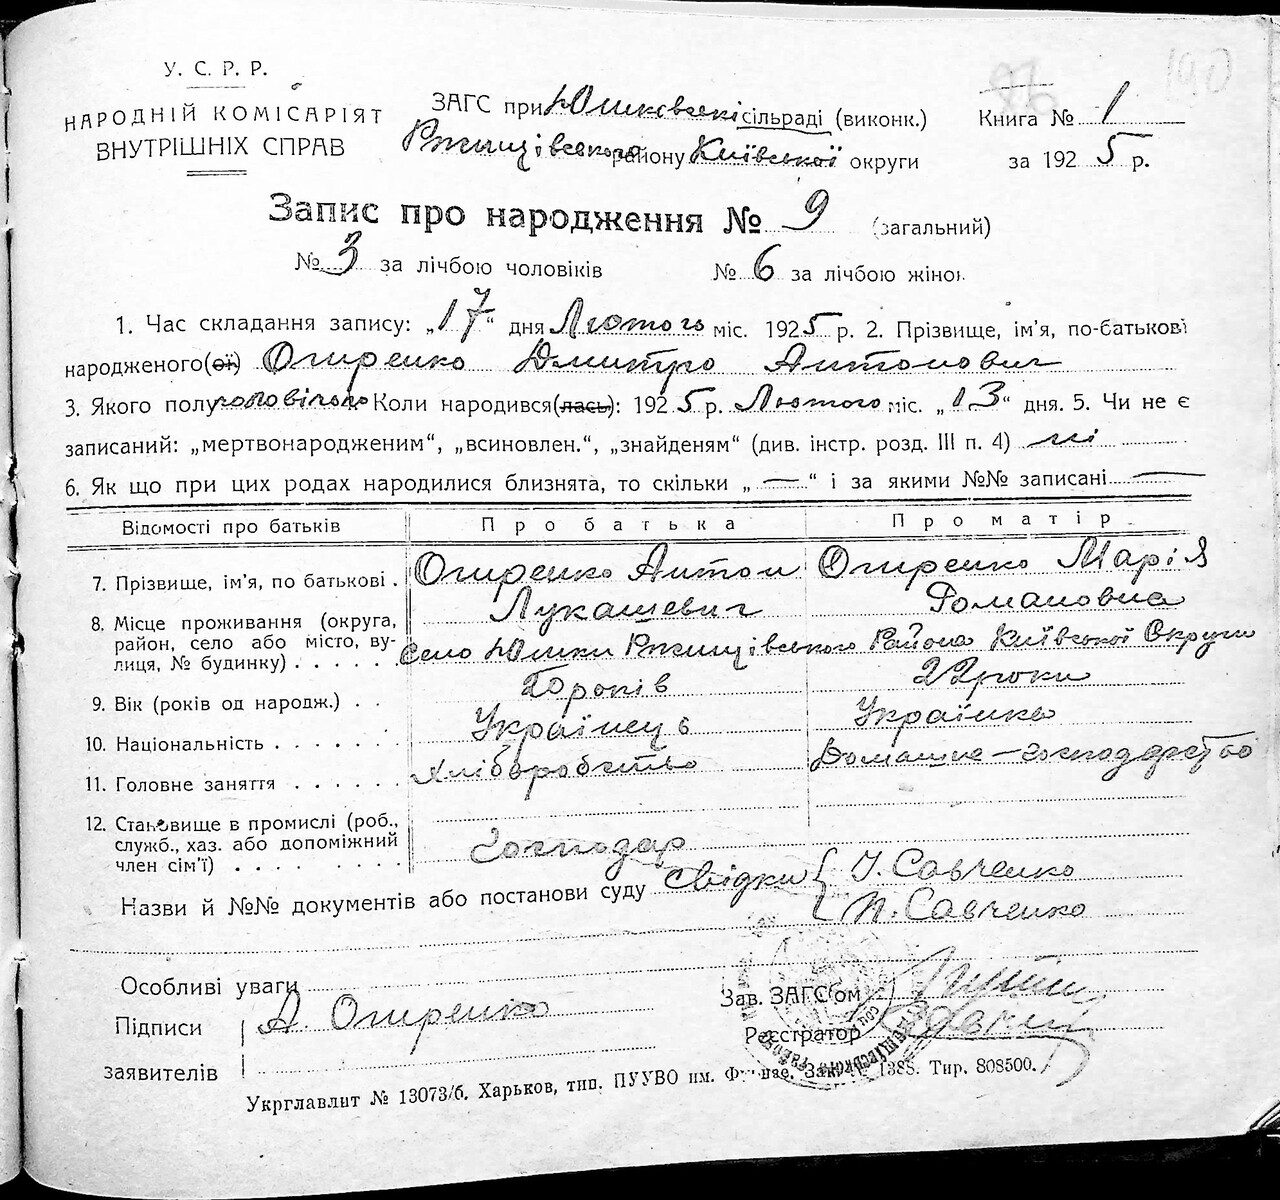 У. С. Р. Р.
НАРОДНІЙ КОМІСАРІЯТ
ВНУТРІШНІХ СПРАВ
ЗАГС при Юшковскі сільраді (виконк.)
Ржищівського району Київської округи
Книга № 1
за 1925 р.
190
Запис про народження № 9 (загальний)
№ 3 за лічбою чоловіків № 6 за лічбою жінок
1. Час складання запису: „17“ дня Лютого міс. 1925 р. 2. Прізвище, ім’я, по-батькові
народженого(ої) Огиренко Дмитро Антонович
3. Якого полу чоловічого Коли народився(лась): 1925 р. Лютого міс. „13“ дня. 5. Чи не є
записаний: „мертвонародженим“, „всиновлен.“, „знайденям“ (див. інстр. розд. III п. 4) ні
6. Як що при цих родах народилися близнята, то скільки „—“ і за якими №№ записані —
Відомості про батьків Про батька Про матір
7. Прізвище, ім’я, по батькові . Огиренко Антон Лукашевич Огиренко Марія Романовна
8. Місце проживання (округа,
район, село або місто, ву-
лиця, № будинку) . . . . . Село Юшки Ржищівського Района Київської Округи
9. Вік (років од народж.) . . 20 років 22 роки
10. Національність . . . . . . . Українець Українка
11. Головне заняття . . . . . . Хліборобство Домашнє-господарство
12. Становище в промислі (роб.,
служб., хаз. або допоміжний
член сім’ї) . . . . . Господар
Назви й №№ документів або постанови суду Свідки { І. Савченко
П. Савченко
Особливі уваги
Підписи А. Огиренко
заявителів
Зав. ЗАГС’ом
Реєстратор
Укрглавлит № 13073/б. Харьков, тип. ПУУВО им. Фрунзе. Зак. № 1388. Тир. 808500.